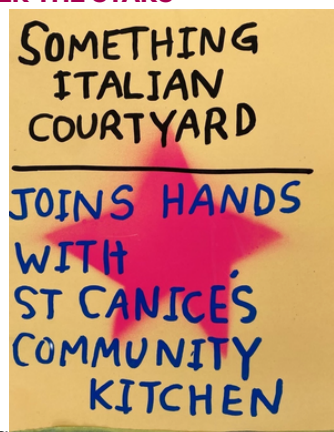 ER THE STARS
SOMETHING
ITALIAN
COURTYARD
JOINS HANDS
WITH
ST CANICE'S
COMMUNITY
KITCHEN